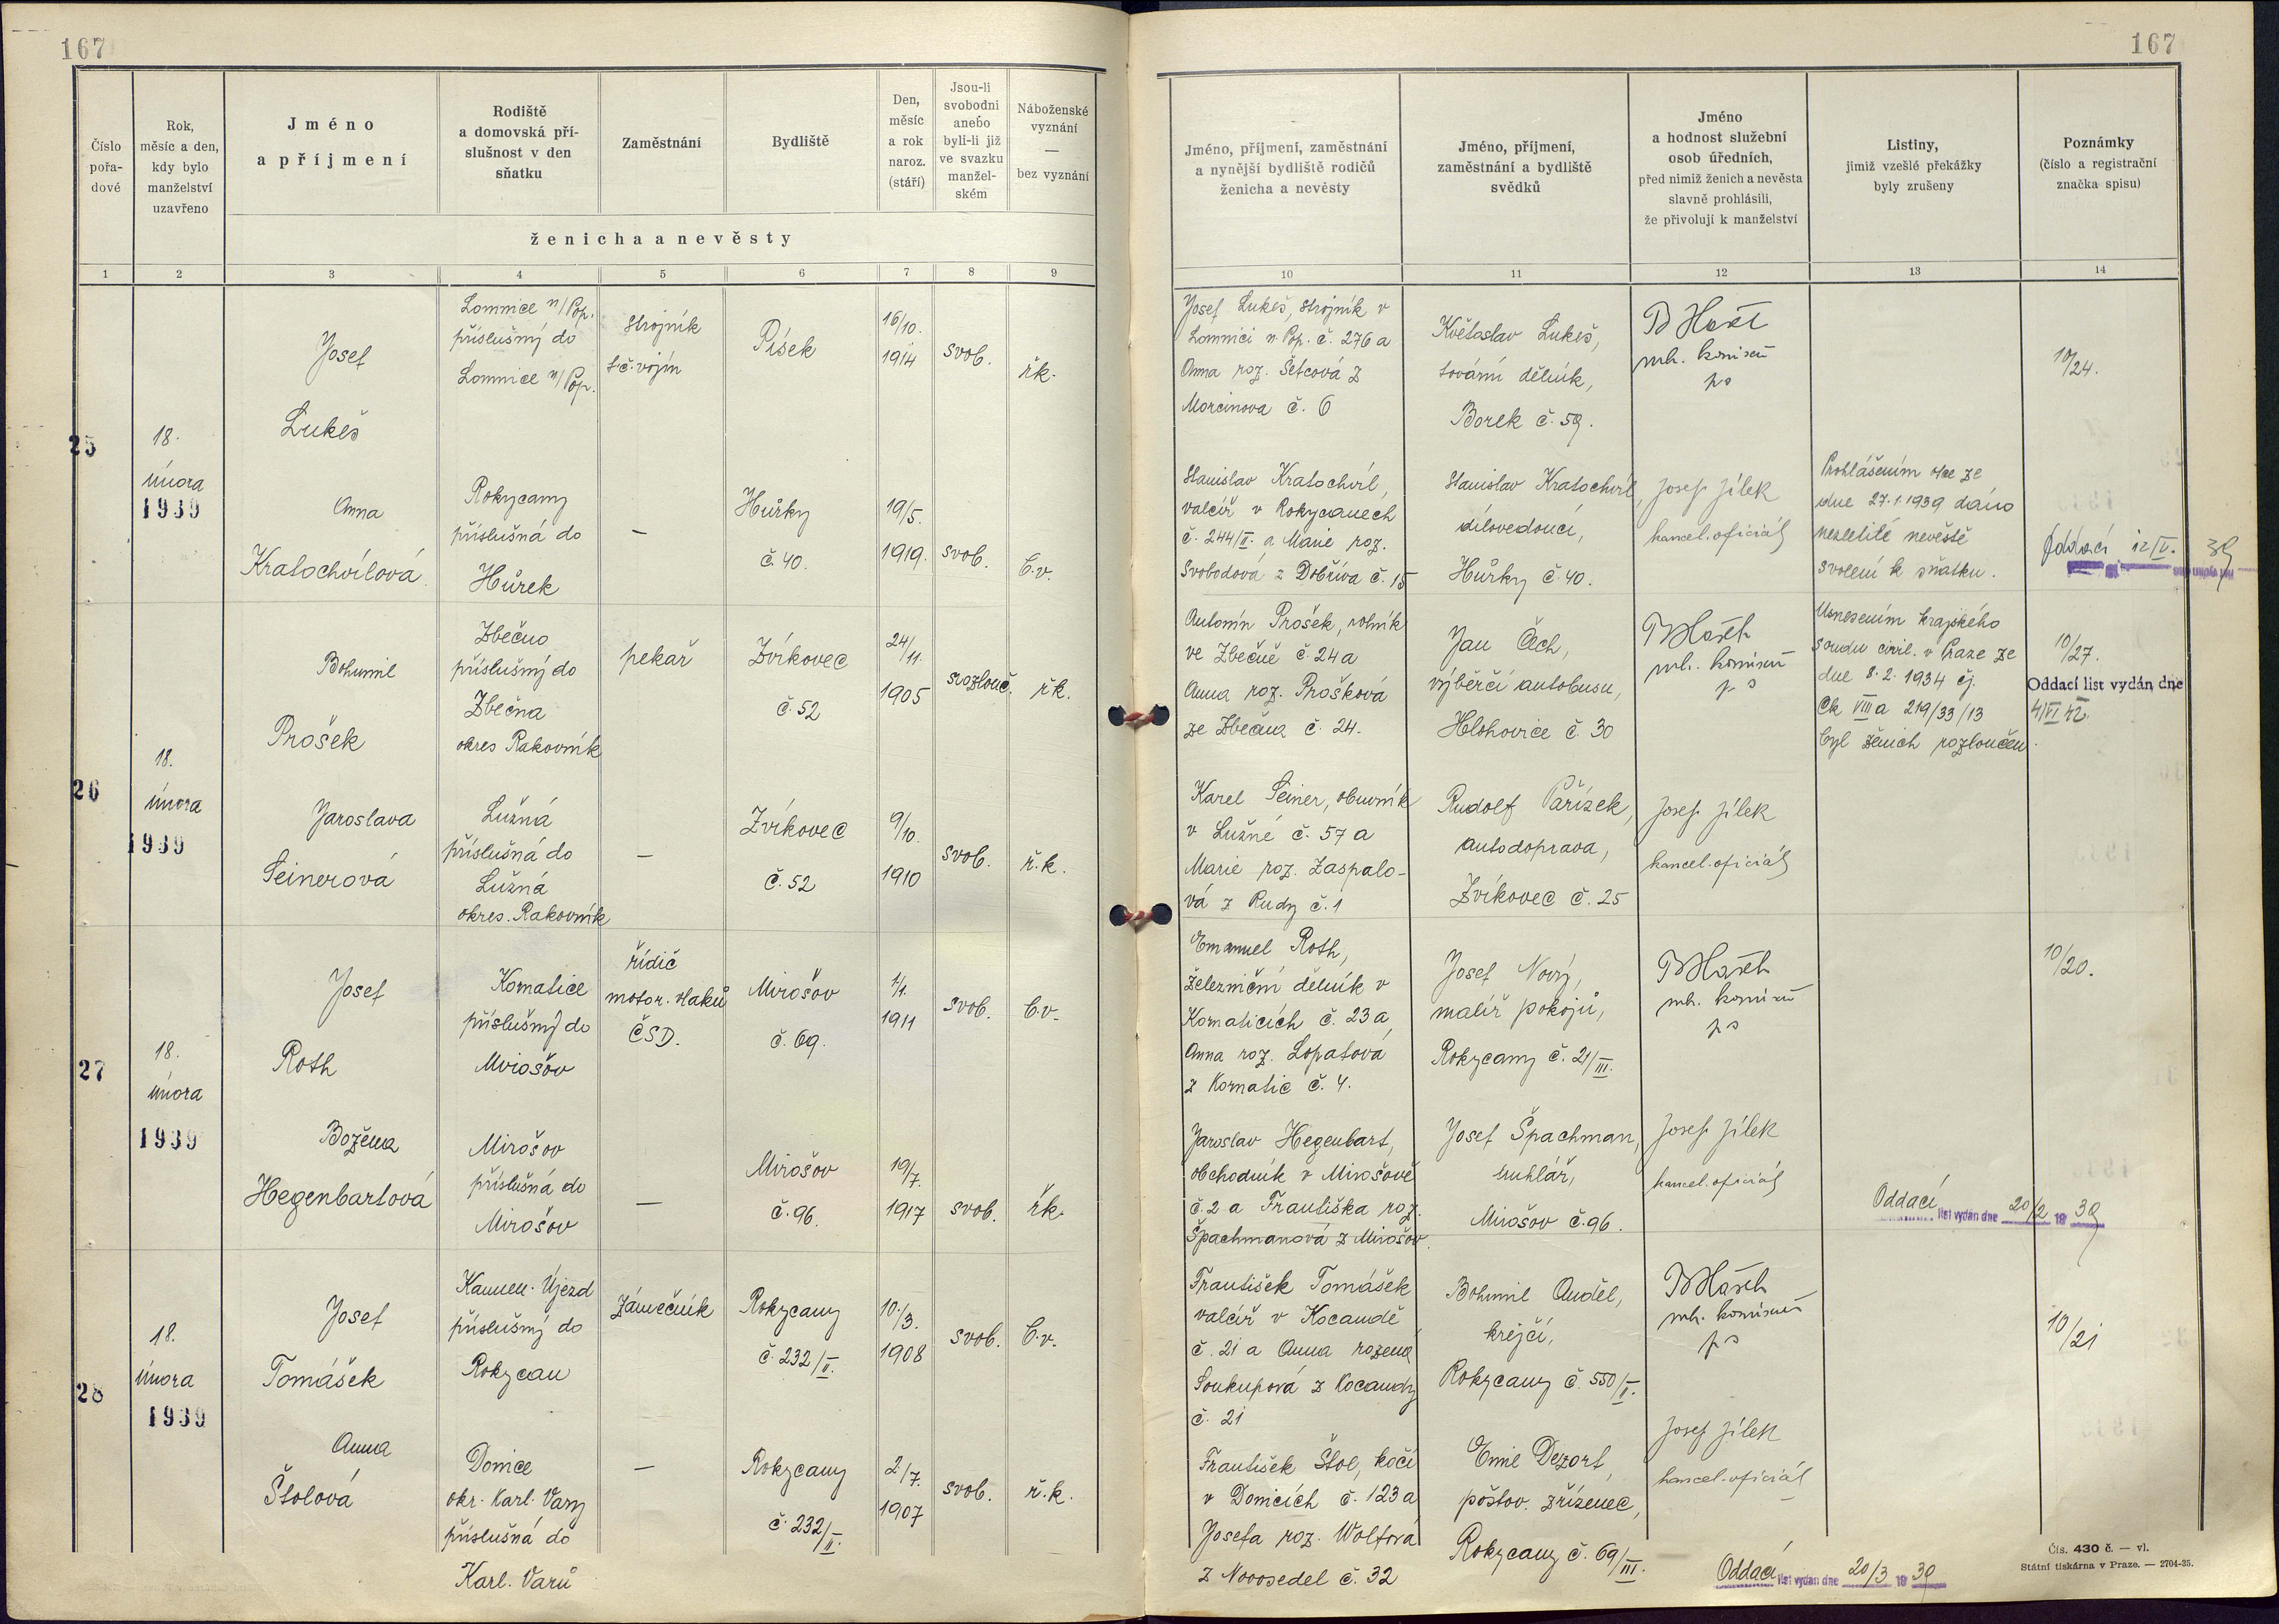 167
167
Číslo
pořa-
dové
Rok,
měsíc a den,
kdy bylo
manželství
uzavřeno
Jméno
a příjmení
Rodiště
a domovská pří-
slušnost v den
sňatku
Zaměstnání
Bydliště
Den,
měsíc
a rok
naroz.
(stáří)
Jsou-li
svobodni
anebo
byli-li již
ve svazku
manžel-
ském
Náboženské
vyznání
—
bez vyznání
ženicha a nevěsty
1 2 3 4 5 6 7 8 9
Jméno, příjmení, zaměstnání
a nynější bydliště rodičů
ženicha a nevěsty
Jméno, příjmení,
zaměstnání a bydliště
svědků
Jméno
a hodnost služební
osob úředních,
před nimiž ženich a nevěsta
slavně prohlásili,
že přivolují k manželství
Listiny,
jimiž vzešlé překážky
byly zrušeny
Poznámky
(číslo a registrační
značka spisu)
10 11 12 13 14
25
18.
února
1939
Josef
Lukeš
Lomnice n/Pop.
příslušný do
Lomnice n/Pop.
strojník
t.č. vojín
Písek
16/10.
1914
svob.
řk.
Josef Lukeš, strojník v
Lomnici n. Pop. č. 276 a
Anna roz. Šetcová z
Morcinova č. 6
Květoslav Lukeš,
tovární dělník,
Borek č. 59.
10/24.
Anna
Kratochvílová
Rokycany
příslušná do
Hůrek
—
Hůrky
č. 40.
19/5.
1919.
svob.
b.v.
Stanislav Kratochvíl,
valcíř v Rokycanech
č. 244/II. a Marie roz.
Svobodová z Dobříva č. 15
Stanislav Kratochvíl,
dílovedoucí,
Hůrky č. 40.
Josef Jílek
kancel. oficiál
Prohlášením otce ze
dne 27.1.1939 dáno
nezletilé nevěstě
svolení k sňatku.
Oddací 12/V. 39
26
18.
února
1939
Bohumil
Prošek
Zbečno
příslušný do
Zbečna
okres Rakovník
pekař
Zvíkovec
č. 52
24/11.
1905
rozlouč.
řk.
Antonín Prošek, rolník
ve Zbečně č. 24 a
Anna roz. Prošková
ze Zbečna č. 24.
Jan Čech,
výběrčí autobusu,
Hlohovice č. 30
Usnesením krajského
soudu civil. v Praze ze
dne 8.2.1934 čj.
Ck VIII a 219/33/13
byl ženich rozloučen.
10/27.
Oddací list vydán dne
4/VI 42.
Jaroslava
Seinerová
Lužná
příslušná do
Lužná
okres. Rakovník
—
Zvíkovec
č. 52
9/10.
1910
svob.
ř.k.
Karel Seiner, obuvník
v Lužné č. 57 a
Marie roz. Zaspalo-
vá z Rudy č. 1
Rudolf Pařízek,
autodoprava,
Zvíkovec č. 25
Josef Jílek
kancel. oficiál
27
18.
února
1939
Josef
Roth
Komatice
příslušný do
Mirošov
řídič
motor. vlaků
ČSD.
Mirošov
č. 69.
1/1.
1911
svob.
b.v.
Emanuel Roth,
železniční dělník v
Kornaticích č. 23 a
Anna roz. Lopatová
z Kornatic č. 4.
Josef Nový,
malíř pokojů,
Rokycany č. 21/III.
10/20.
Božena
Hegenbartová
Mirošov
příslušná do
Mirošov
—
Mirošov
č. 96.
19/7.
1917
svob.
řk.
Jaroslav Hegenbart,
obchodník v Mirošově
č. 2 a Františka roz.
Špachmanová z Mirošov.
Josef Špachman,
truhlář,
Mirošov č. 96.
Josef Jílek
kancel. oficiál
Oddací list vydán dne 20/2 19 39
28
18.
února
1939
Josef
Tomášek
Kamen. Újezd
příslušný do
Rokycan
zámečník
Rokycany
č. 232/II.
10./3.
1908
svob.
b.v.
František Tomášek
valcíř v Kocandě
č. 21 a Anna rozená
Soukupová z Kocandy
č. 21
Bohumil Anděl,
krejčí,
Rokycany č. 550/II.
10/21
Anna
Štolová
Donice
okr. Karl. Vary
příslušná do
Karl. Varů
—
Rokycany
č. 232/II.
2/7.
1907
svob.
ř.k.
František Štol, kočí
v Donicích č. 123 a
Josefa roz. Wolfová
z Novosedel č. 32
Emil Dezort,
poštov. zřízenec,
Rokycany č. 69/III.
Josef Jílek
kancel. oficiál
Oddací list vydán dne 20/3 19 39
Čís. 430 č. — vl.
Státní tiskárna v Praze. — 2704-35.